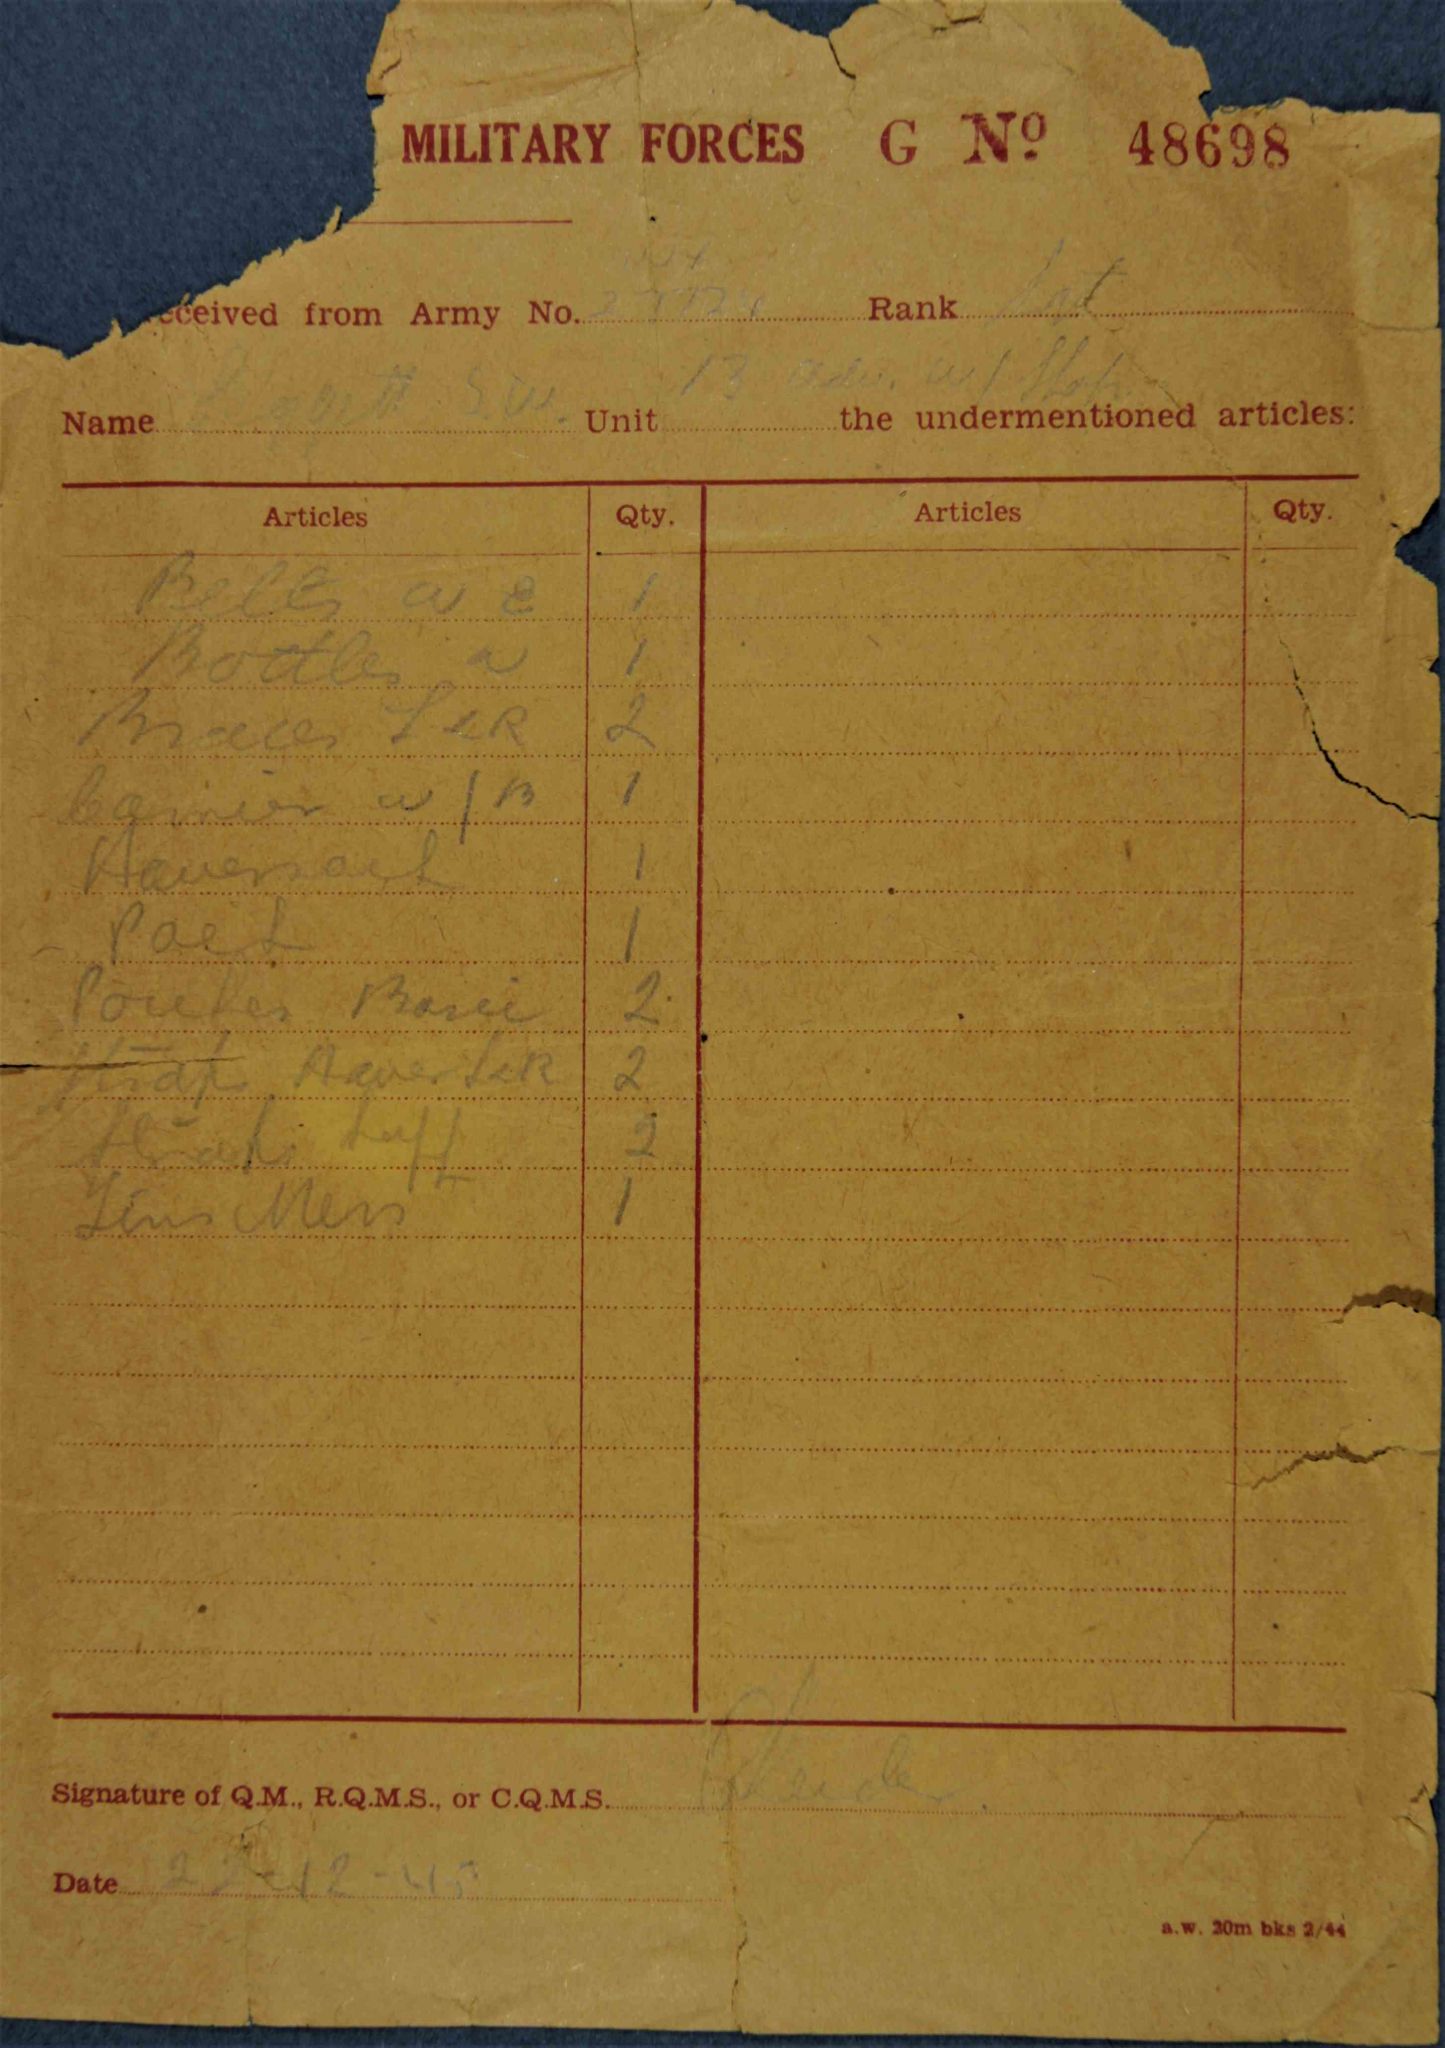 MILITARY FORCES G Nº 48698
eceived from Army No. Rank Sgt
Name S.W. Unit 13 adv. w/shop the undermentioned articles:
Articles Qty. Articles Qty.
Belts w e 1
Bottles w 1
Braces L&R 2
Carrier w/B 1
Haversack 1
Pack 1
Pouches Basic 2
Straps Haver L&R 2
Straps Supp 2
Tins Mess 1
Signature of Q.M., R.Q.M.S., or C.Q.M.S.
Date 22-12-45
a.w. 20m bks 2/44